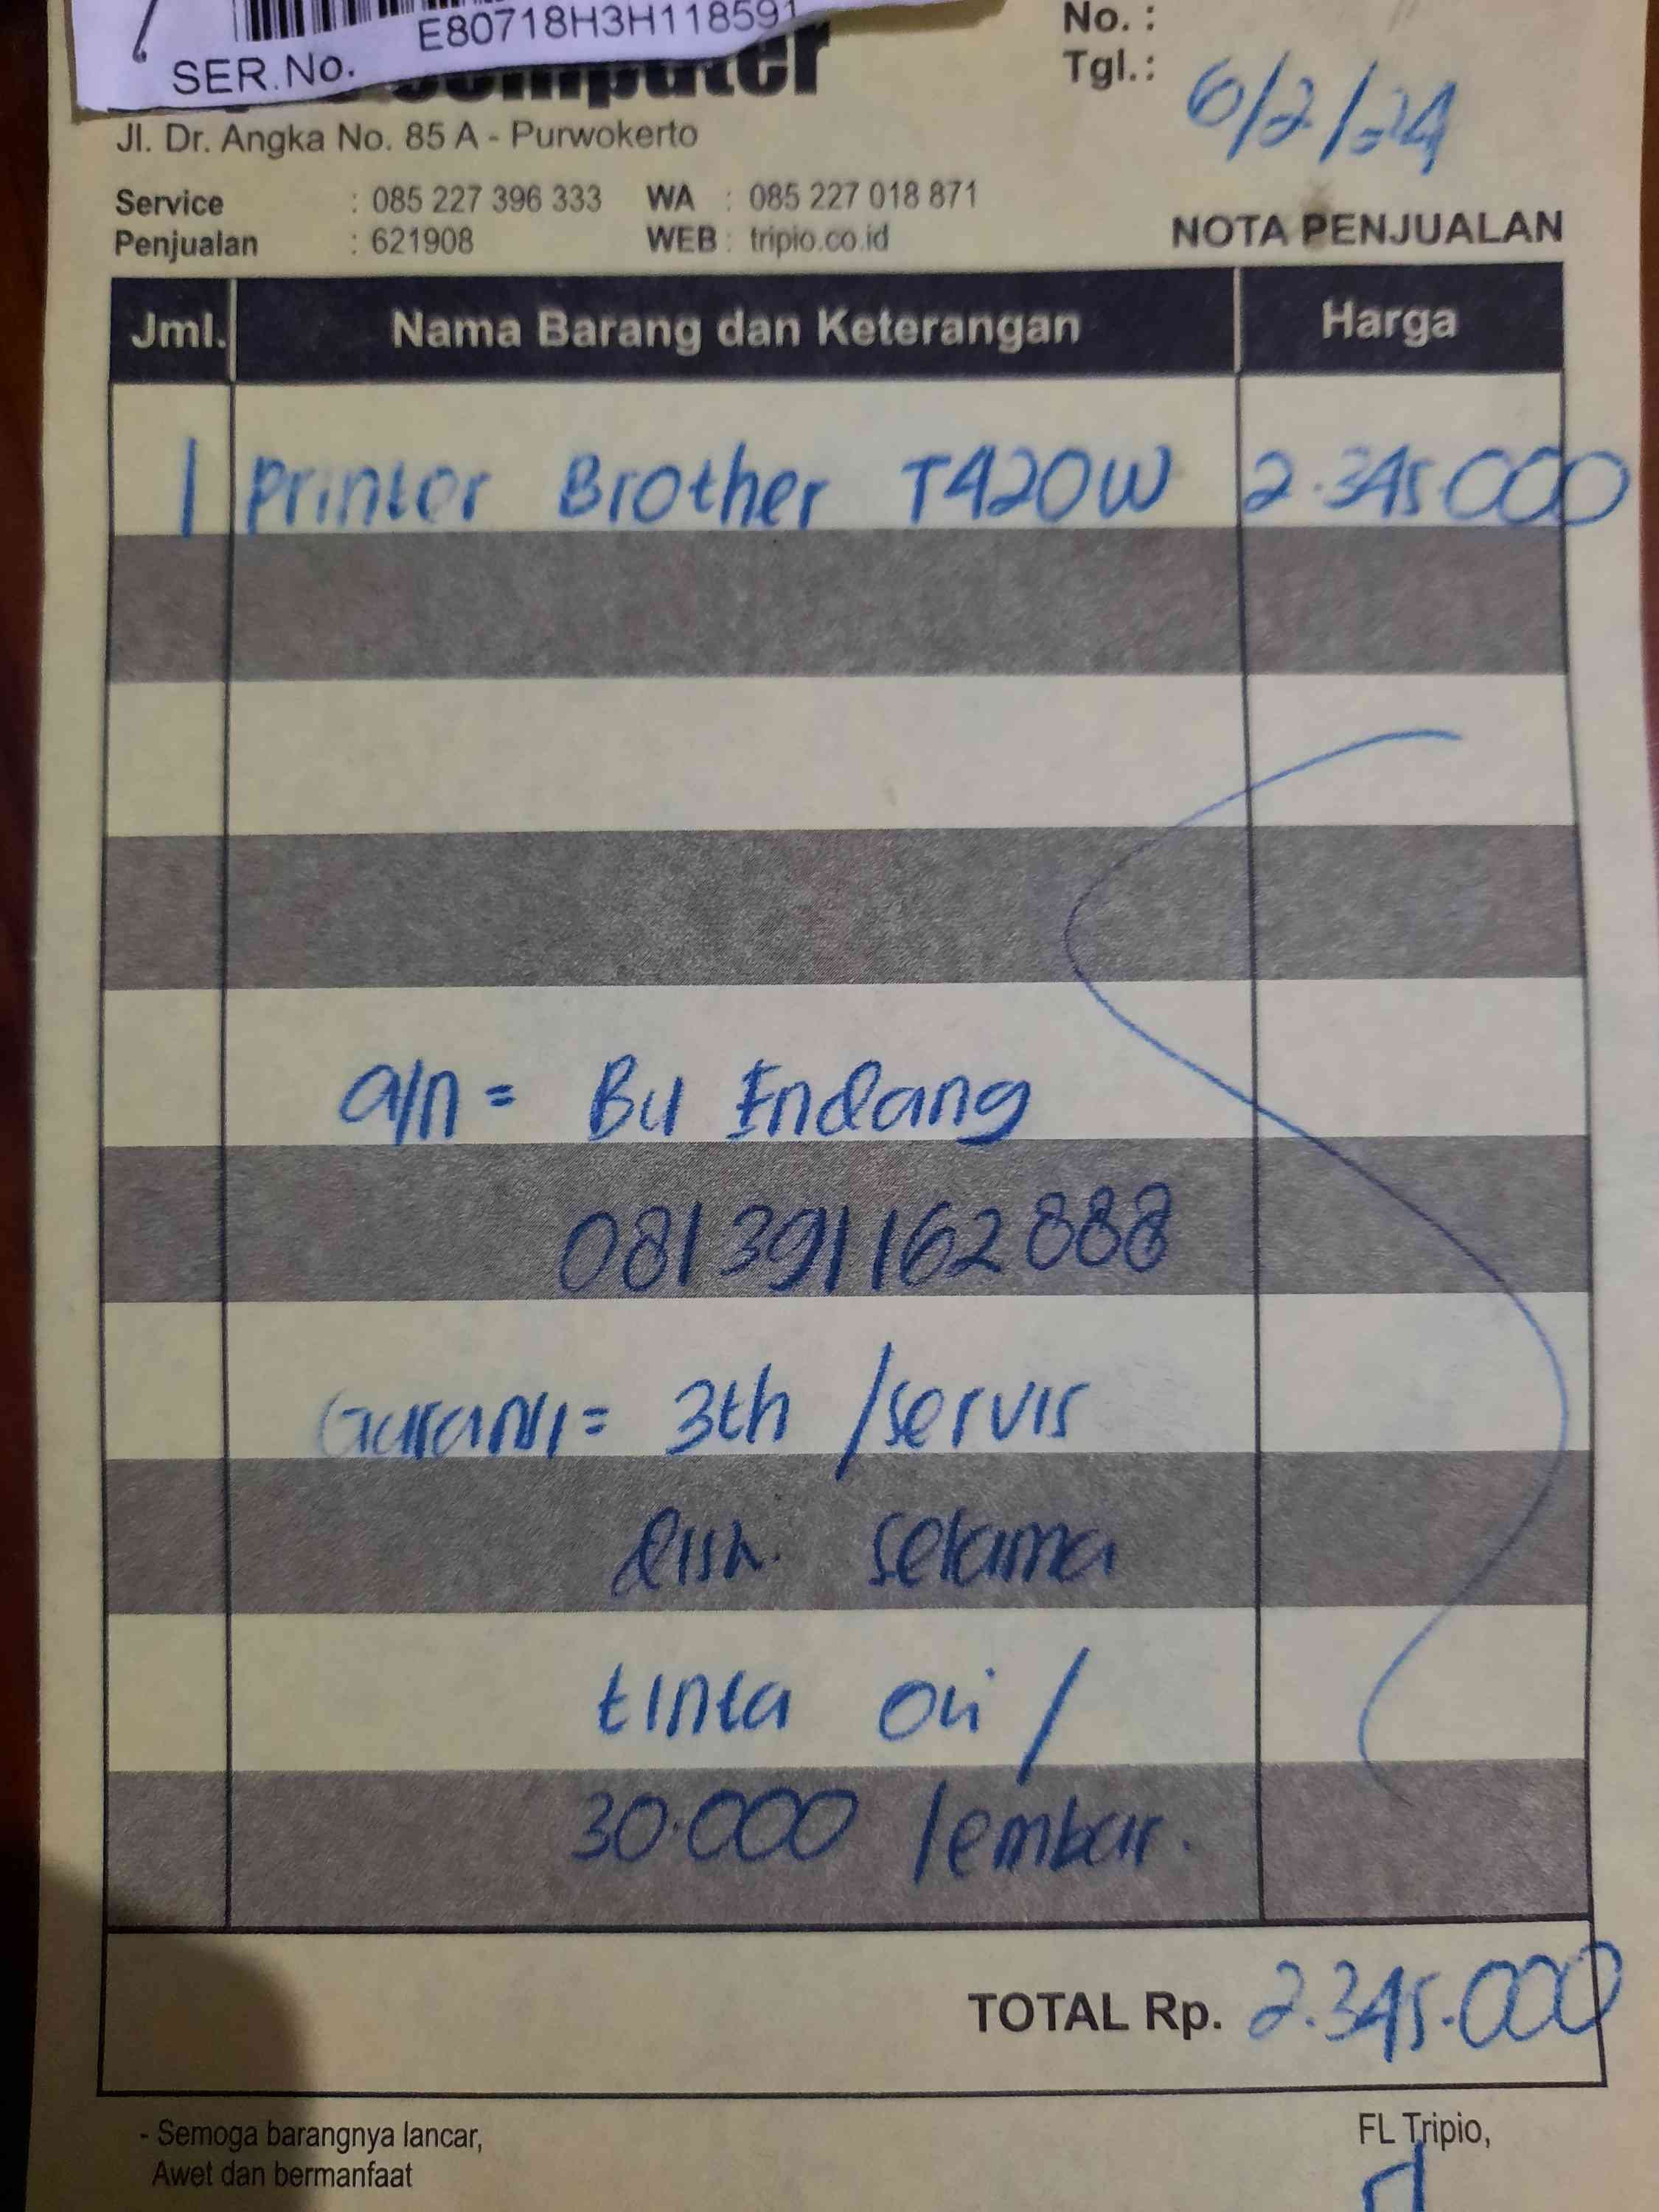 E80718H3H118591
SER.No.
Computer
Jl. Dr. Angka No. 85 A - Purwokerto
No. :
Tgl. : 6/2/24
Service : 085 227 396 333 WA : 085 227 018 871
Penjualan : 621908 WEB : tripio.co.id
NOTA PENJUALAN
Jml. Nama Barang dan Keterangan Harga
1 Printer Brother T420W 2.345.000
a/n = Bu Endang
081391162888
Garansi = 3th /servis
selama
tinta ori /
30.000 lembar.
TOTAL Rp. 2.345.000
- Semoga barangnya lancar,
Awet dan bermanfaat
FL Tripio,